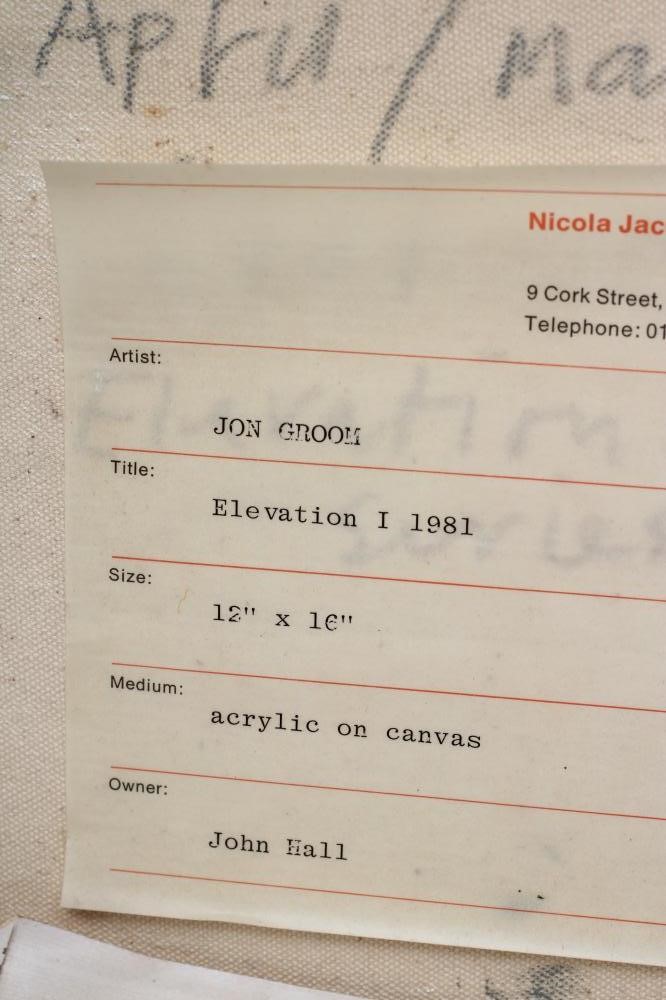 April / Ma
Nicola Jac
9 Cork Street,
Telephone: 01
Artist:
Elevation
JON GROOM
Title:
Elevation I 1981
Series
Size:
12" x 16"
Medium:
acrylic on canvas
Owner:
John Hall